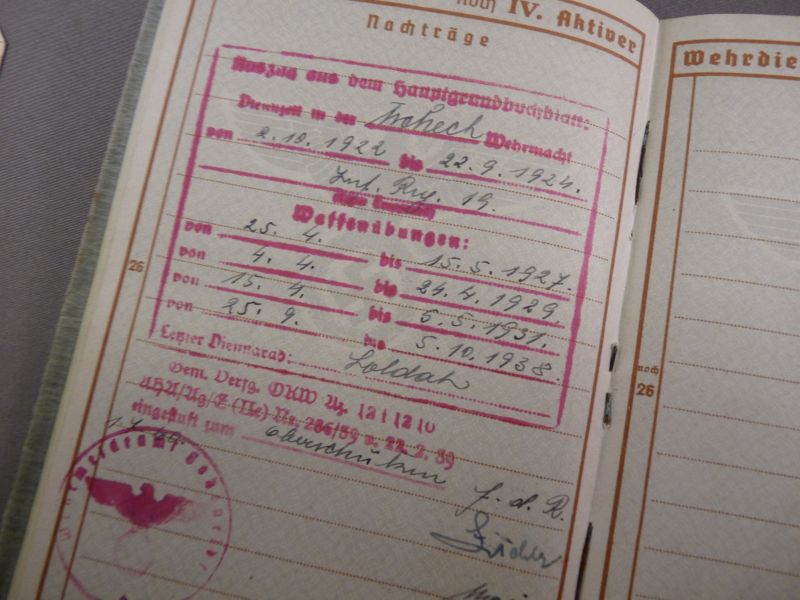 noch IV. Aktiver
Nachträge
Auszug aus dem Hauptgrundbuchblatt:
Dienstzeit in der Tschech. Wehrmacht
von 2.10.1922 bis 22.9.1924.
Inf. Reg. 19.
Waffenübungen:
von 25. 4. bis 15. 5. 1927.
von 4. 4. bis 24. 4. 1929
von 15. 4. bis 5. 5. 1931.
von 25. 9. bis 5. 10. 1938.
Letzter Dienstgrad: Soldat
Gem. Verfg. OKW Az. 12 i 12 10
AHA/Ag/E (Ne) Nr. 286/39 v. 22. 2. 39
eingestuft zum Oberschützen
f. d. R.
26
Wehrdie
noch
26